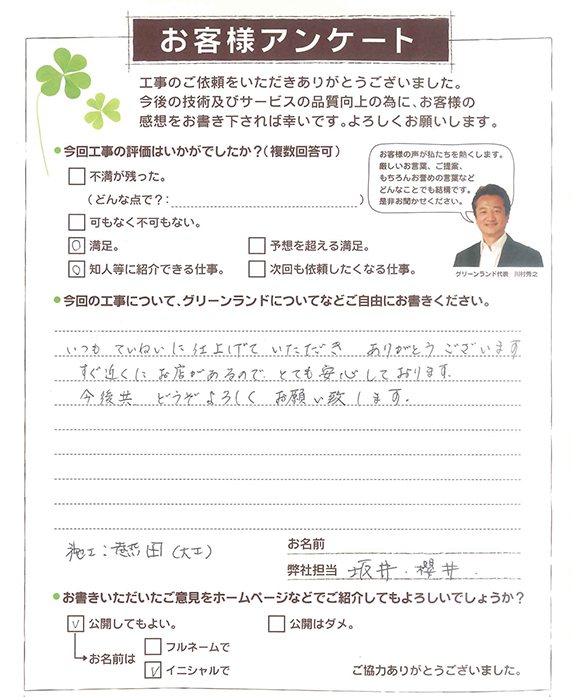 お客様アンケート
工事のご依頼をいただきありがとうございました。
今後の技術及びサービスの品質向上の為に、お客様の
感想をお書き下されば幸いです。よろしくお願いします。
今回工事の評価はいかがでしたか？（複数回答可）
不満が残った。
（どんな点で？：　　　）
可もなく不可もない。
○ 満足。
予想を超える満足。
○ 知人等に紹介できる仕事。
次回も依頼したくなる仕事。
お客様の声が私たちを熱くします。
厳しいお言葉、ご提案、
もちろんお誉めの言葉など
どんなことでも結構です。
是非お聞かせください。
グリーンランド代表　川村秀之
今回の工事について、グリーンランドについてなどご自由にお書きください。
いつも ていねいに仕上げて いただき ありがとうございます
すぐ近くにお店があるので とても安心しております。
今後共 どうぞよろしく お願い致します。
施工：田（大工）
お名前
弊社担当 坂井・櫻井
お書きいただいたご意見をホームページなどでご紹介してもよろしいでしょうか？
✓ 公開してもよい。
公開はダメ。
お名前は
フルネームで
✓ イニシャルで
ご協力ありがとうございました。